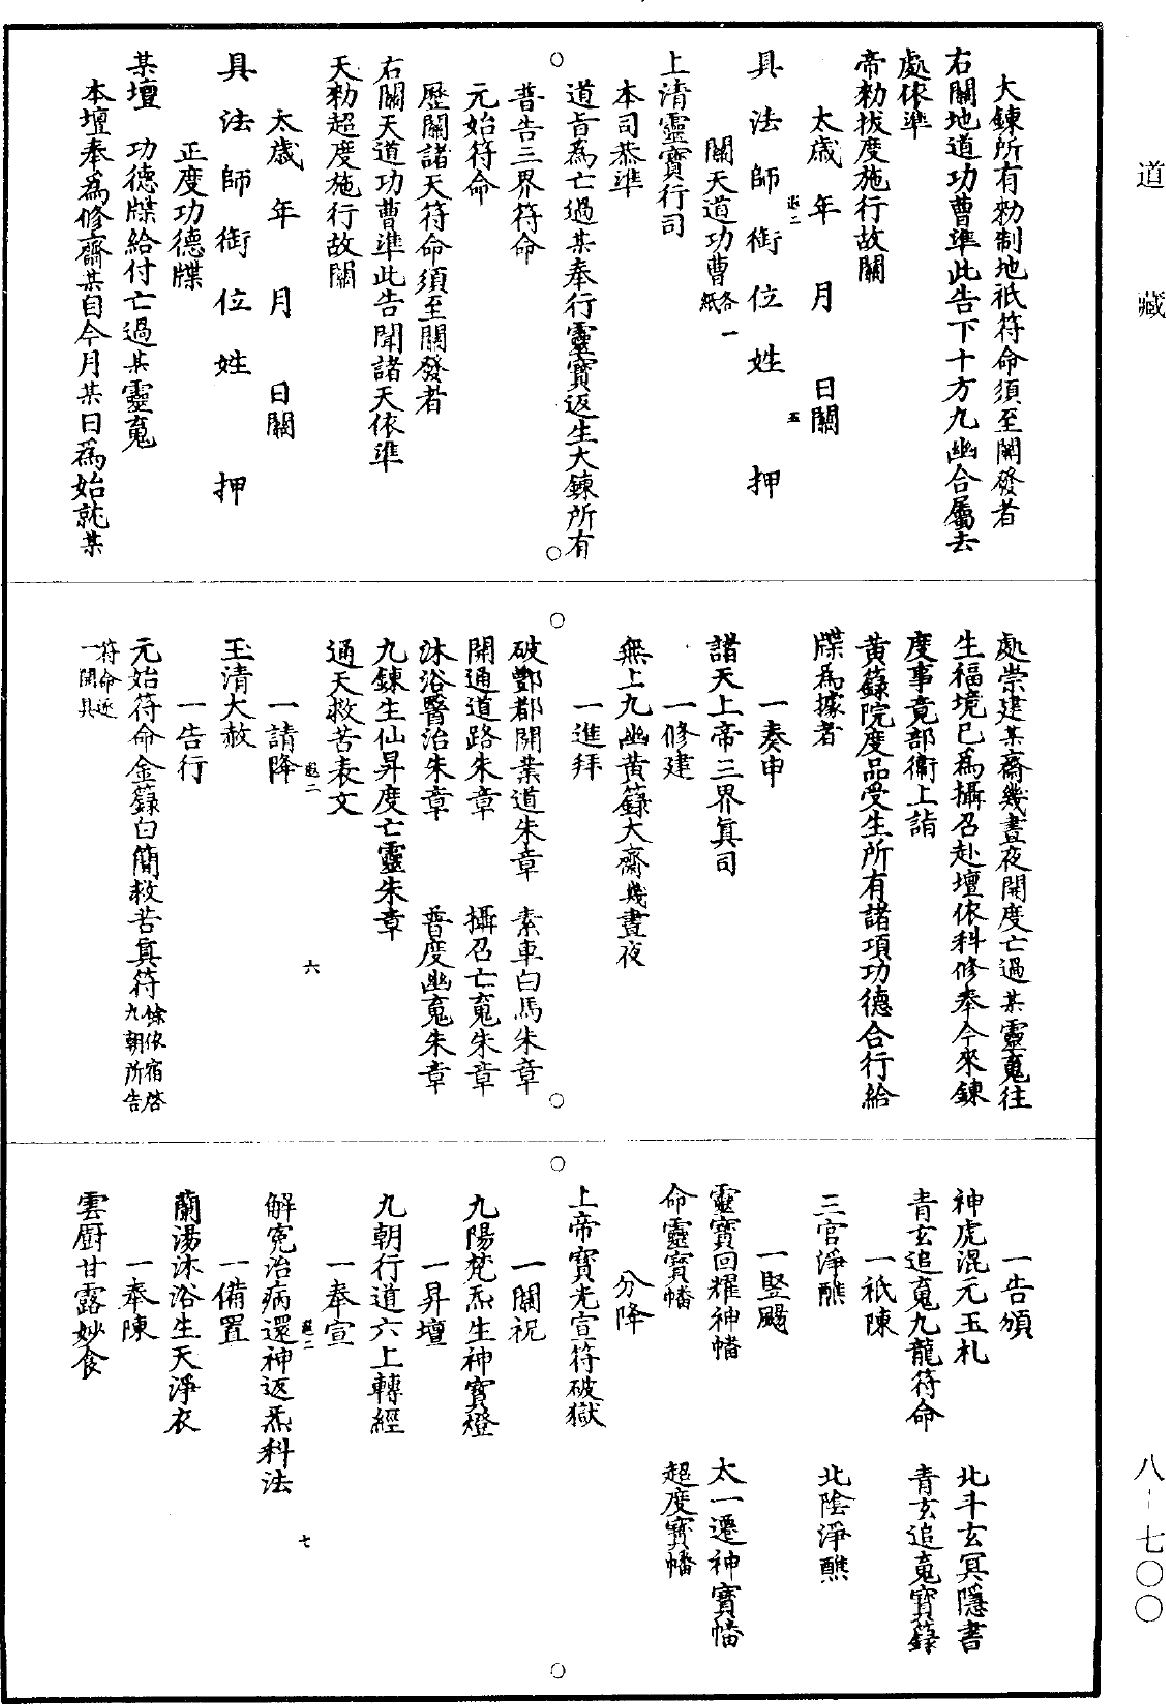 道藏
八-七〇〇
大鍊所有勑制地祇符命須至關發者
右關地道功曹準此告下十方九幽合屬去
處依準
帝勑拔度施行故關
太歲 年 月 日關
具法師銜位姓 押
關天道功曹各一紙
上清靈寶行司
本司恭準
道旨為亡過某奉行靈寶返生大鍊所有
普告三界符命
元始符命
歷關諸天符命須至關發者
右關天道功曹準此告聞諸天依準
天勑超度施行故關
太歲 年 月 日關
具法師銜位姓 押
正度功德牒
某壇 功德牒給付亡過某靈䰟
本壇奉為修齋某自今月某日為始就某
處崇建某齋幾晝夜開度亡過某靈䰟往
生福境已為攝召赴壇依科修奉今來鍊
度事竟部衞上詣
黃籙院度品受生所有諸項功德合行給
牒為據者
一奏申
諸天上帝三界真司
一修建
無上九幽黃籙大齋幾晝夜
一進拜
破酆都開業道朱章 素車白馬朱章
開通道路朱章 攝召亡䰟朱章
沐浴醫治朱章 普度幽䰟朱章
九鍊生仙昇度亡靈朱章
通天救苦表文
一請降
玉清大赦
一告行
元始符命金籙白簡救苦真符餘依宿啓九朝所告
符命逐一開具
一告頒
神虎混元玉札 北斗玄冥隱書
青玄追䰟九龍符命 青玄追䰟寶籙
一祇陳
三官淨醮 北陰淨醮
一竪颺
靈寶回耀神幡 太一遷神寶幡
命靈寶幡 超度寶幡
分降
上帝寶光宣符破獄
一關祝
九陽梵炁生神寶燈
一昇壇
九朝行道六上轉經
一奉宣
解寃治病還神返炁科法
一備置
蘭湯沐浴生天淨衣
一奉陳
雲厨甘露妙食